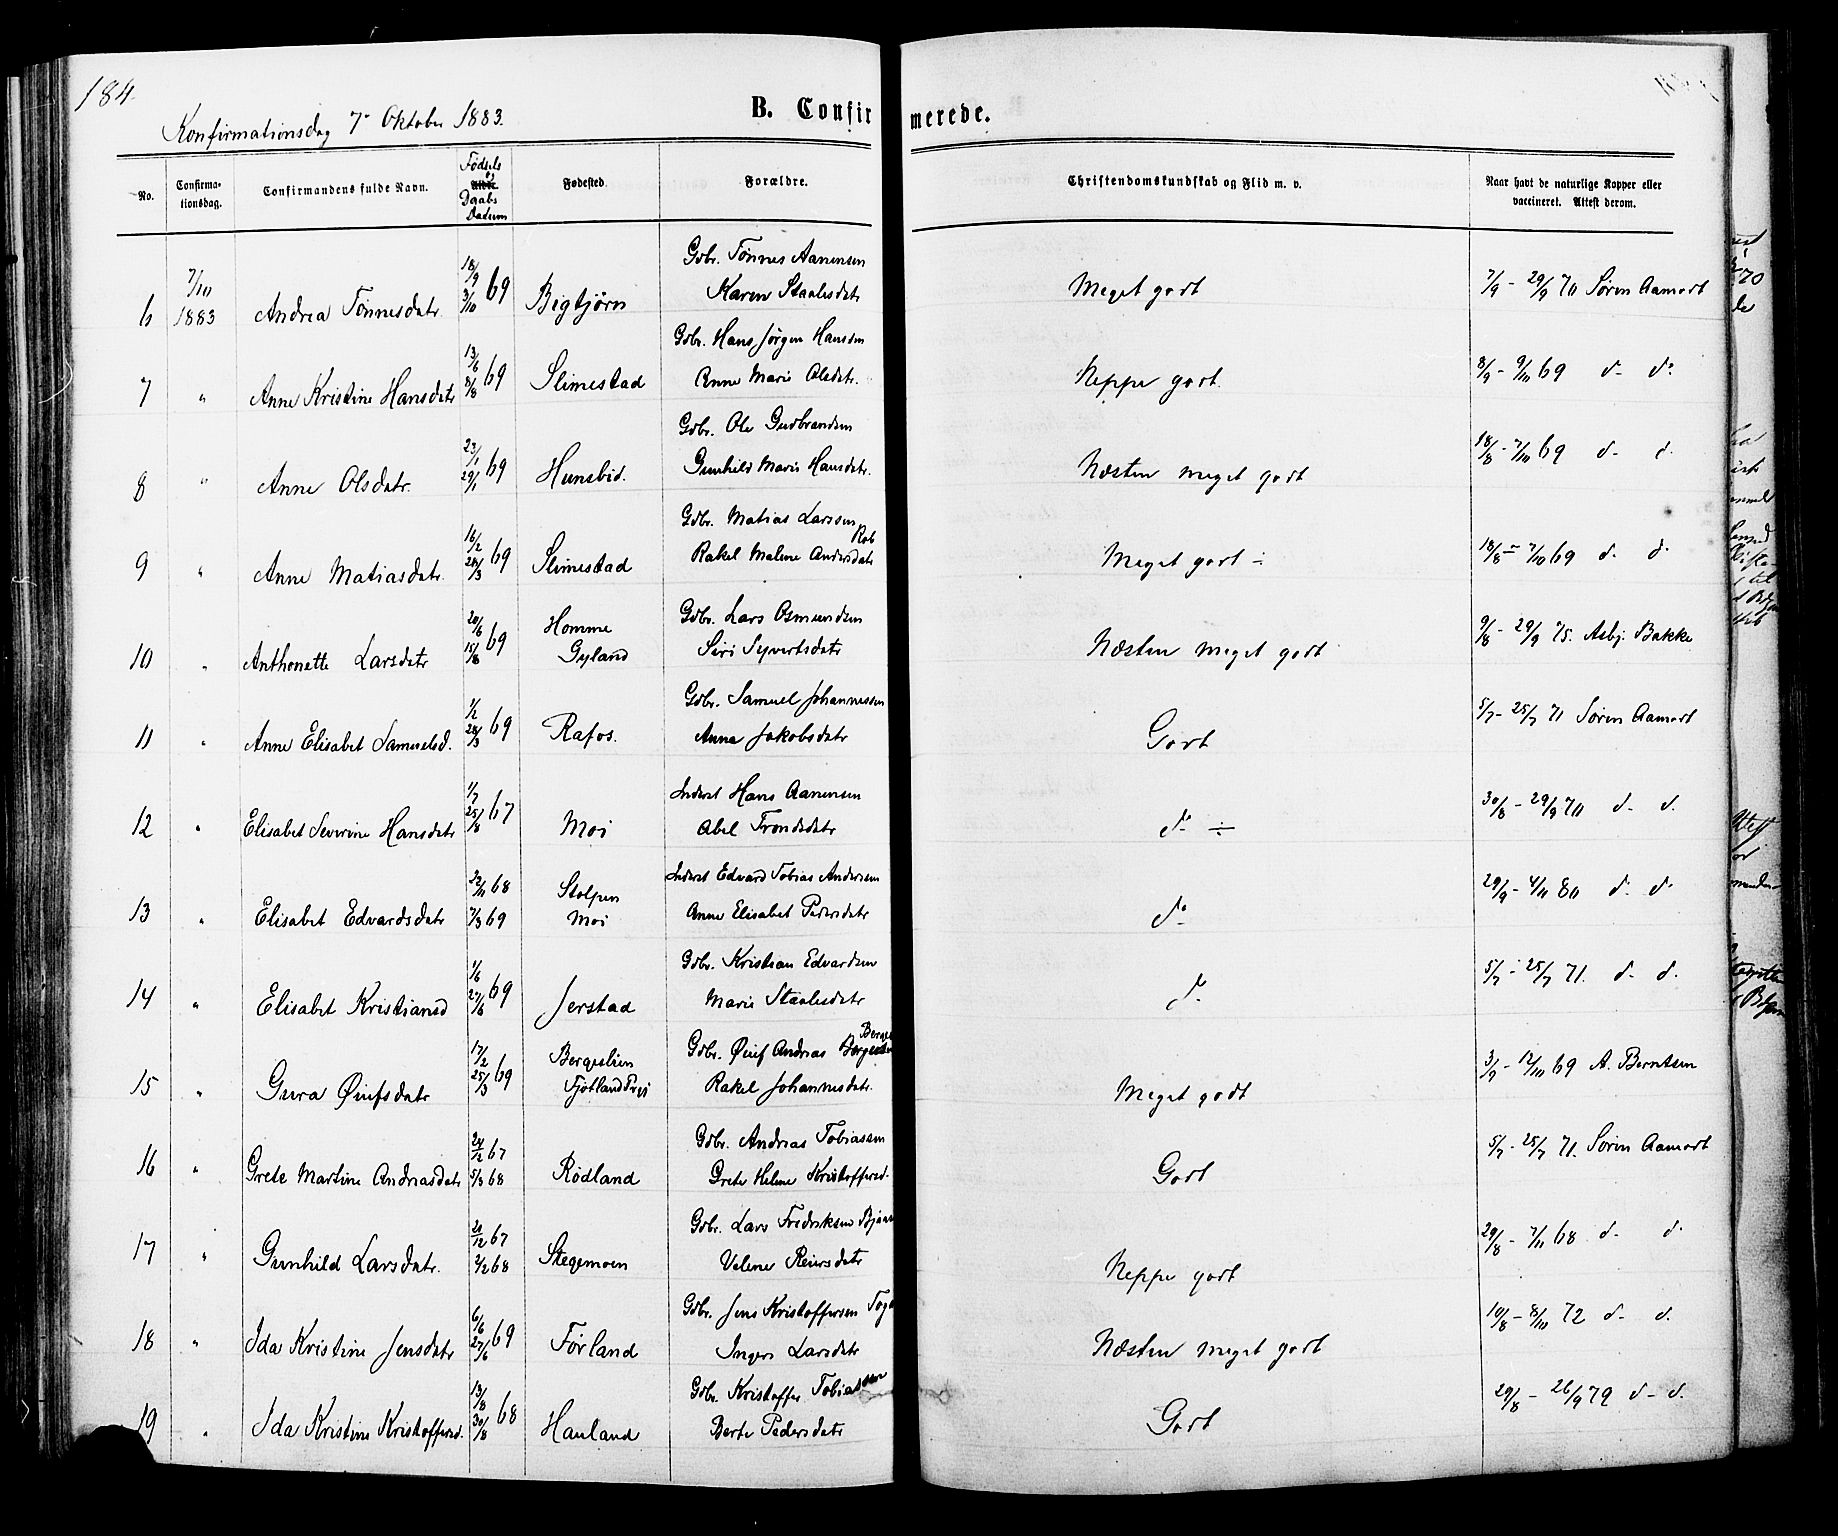 184.
Konfirmationsdag 7de Oktober 1883.
B. Confirmerede.
No.
Confirma-
tionsdag.
Confirmandens fulde Navn.
Fødsels
og
Alder
Daabs
Datum
Fødested.
Forældre.
Christendomskundskab og Flid m. v.
Naar havt de naturlige Kopper eller
vaccineret. Attest derom.
6 7/10 1883 Andrea Tønnesdatr. 18/9 3/10 69 Bigtjørn Gdbr. Tønnes Aanensen Karen Staalesdatr Meget godt 7/9 - 29/9 70 Søren Aamodt
7 " Anne Kristine Hansdatr 13/6 8/8 69 Slimestad Gdbr. Hans Jørgen Hanssen Anne Marie Olsdatr. Neppe godt. 8/9 - 9/10 69 do do
8 " Anne Olsdatr. 23/1 29/1 69 Hunsbid. Gdbr. Ole Gudbrandsen Gunhild Marie Hansdatr. Næsten meget godt 18/8 - 7/10 69 do do
9 " Anne Matiasdatr. 16/2 28/3 69 Slimestad Gdbr. Matias Larssen Rob Rakel Malene Andersdatr Meget godt ÷ 18/8 - 7/10 69 do do
10 " Anthonette Larsdatr 20/6 15/8 69 Homme Gyland Gdbr. Lars Osmundsen Siri Syvertsdatr Næsten meget godt 9/8 - 29/9 75. Asbj. Bakke
11 " Anne Elisabet Samuelsd. 1/2 28/3 69 Rafos. Gdbr. Samuel Johannessen Anna Jakobsdatr Godt 5/7 - 25/7 71 Søren Aamodt
12 " Elisabet Severine Hansdatr 1/7 25/8 67 Moi Inderst Hans Aanensen Abel Trondsdatr do ÷ 30/8 - 29/9 70 do do
13 " Elisabet Edvardsdatr 22/11 68 7/3 69 Stolpen Moi Inderst Edvard Tobias Andersen Anne Elisabet Pedersdatr do 29/9 - 4/11 80 do do
14 " Elisabet Kristiansd 1/6 27/6 69 Jerstad Gdbr. Kristian Edvardsen Marie Staalesdatr do 5/7 - 25/7 71. do do
15 " Gura Øuifsdatr 17/2 25/3 69 Bergeslien Fjotland Prgj Gdbr. Øuif Andreas Rakel Johannesdatr. Meget godt 3/9 - 12/10 69 A. Berntsen
16 " Grete Martine Andreasdatr 24/12 67 5/3 68 Rødland Gdbr. Andreas Tobiassen Grete Helene Kristoffersd. Godt 5/7 - 25/7 71. Søren Aamodt
17 " Gunhild Larsdatr. 21/12 67 2/2 68 Stegemoen Gdbr. Lars Fredriksen Velene Reiersdatr Neppe godt 29/8 - 7/11 68 do do
18 " Ida Kristine Jensdatr 6/6 27/6 69 Førland Gdbr. Jens Kristoffersen Inger Larsdatr Næsten meget godt 10/8 - 8/10 72 do do
19 " Ida Kristine Kristoffersd. 13/8 30/8 68 Hauland Gdbr. Kristoffer Tobiassen Berte Pedersdatr Godt 29/8 - 26/9 79 do do